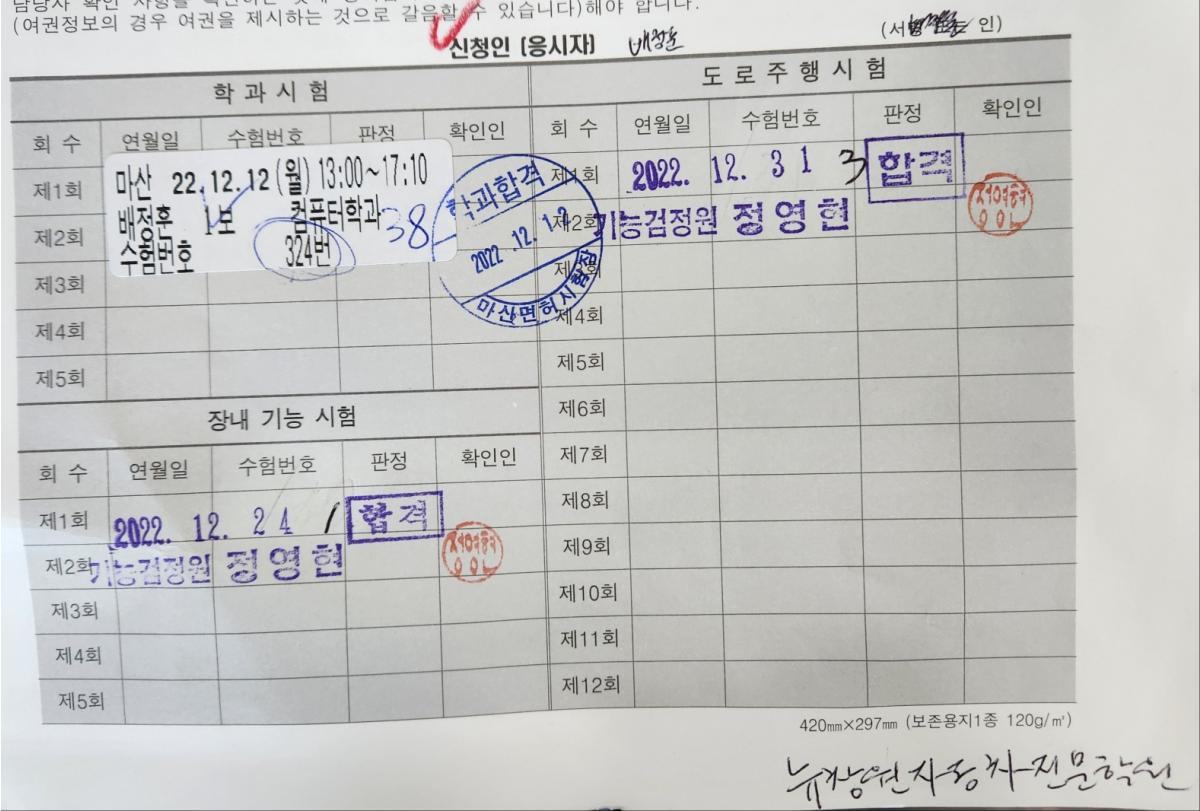 (여권정보의 경우 여권을 제시하는 것으로 갈음할 수 있습니다)해야 합니다.
신청인 (응시자) 배정훈 (서명 인)
학 과 시 험
회 수 연월일 수험번호 판정 확인인
제1회
제2회
제3회
제4회
제5회
마산 22.12.12(월) 13:00~17:10
배정훈 1보 컴퓨터학과 38
수험번호 324번
학과합격
2022. 12. 12
마산면허시험장
장내 기능 시험
회 수 연월일 수험번호 판정 확인인
제1회 2022. 12. 24 1 합격
제2회 기능검정원 정영현
제3회
제4회
제5회
도 로 주 행 시 험
회 수 연월일 수험번호 판정 확인인
제1회 2022. 12. 31 3 합격
제2회 기능검정원 정영현
제3회
제4회
제5회
제6회
제7회
제8회
제9회
제10회
제11회
제12회
420㎜×297㎜ (보존용지1종 120g/㎡)
뉴창원자동차전문학원